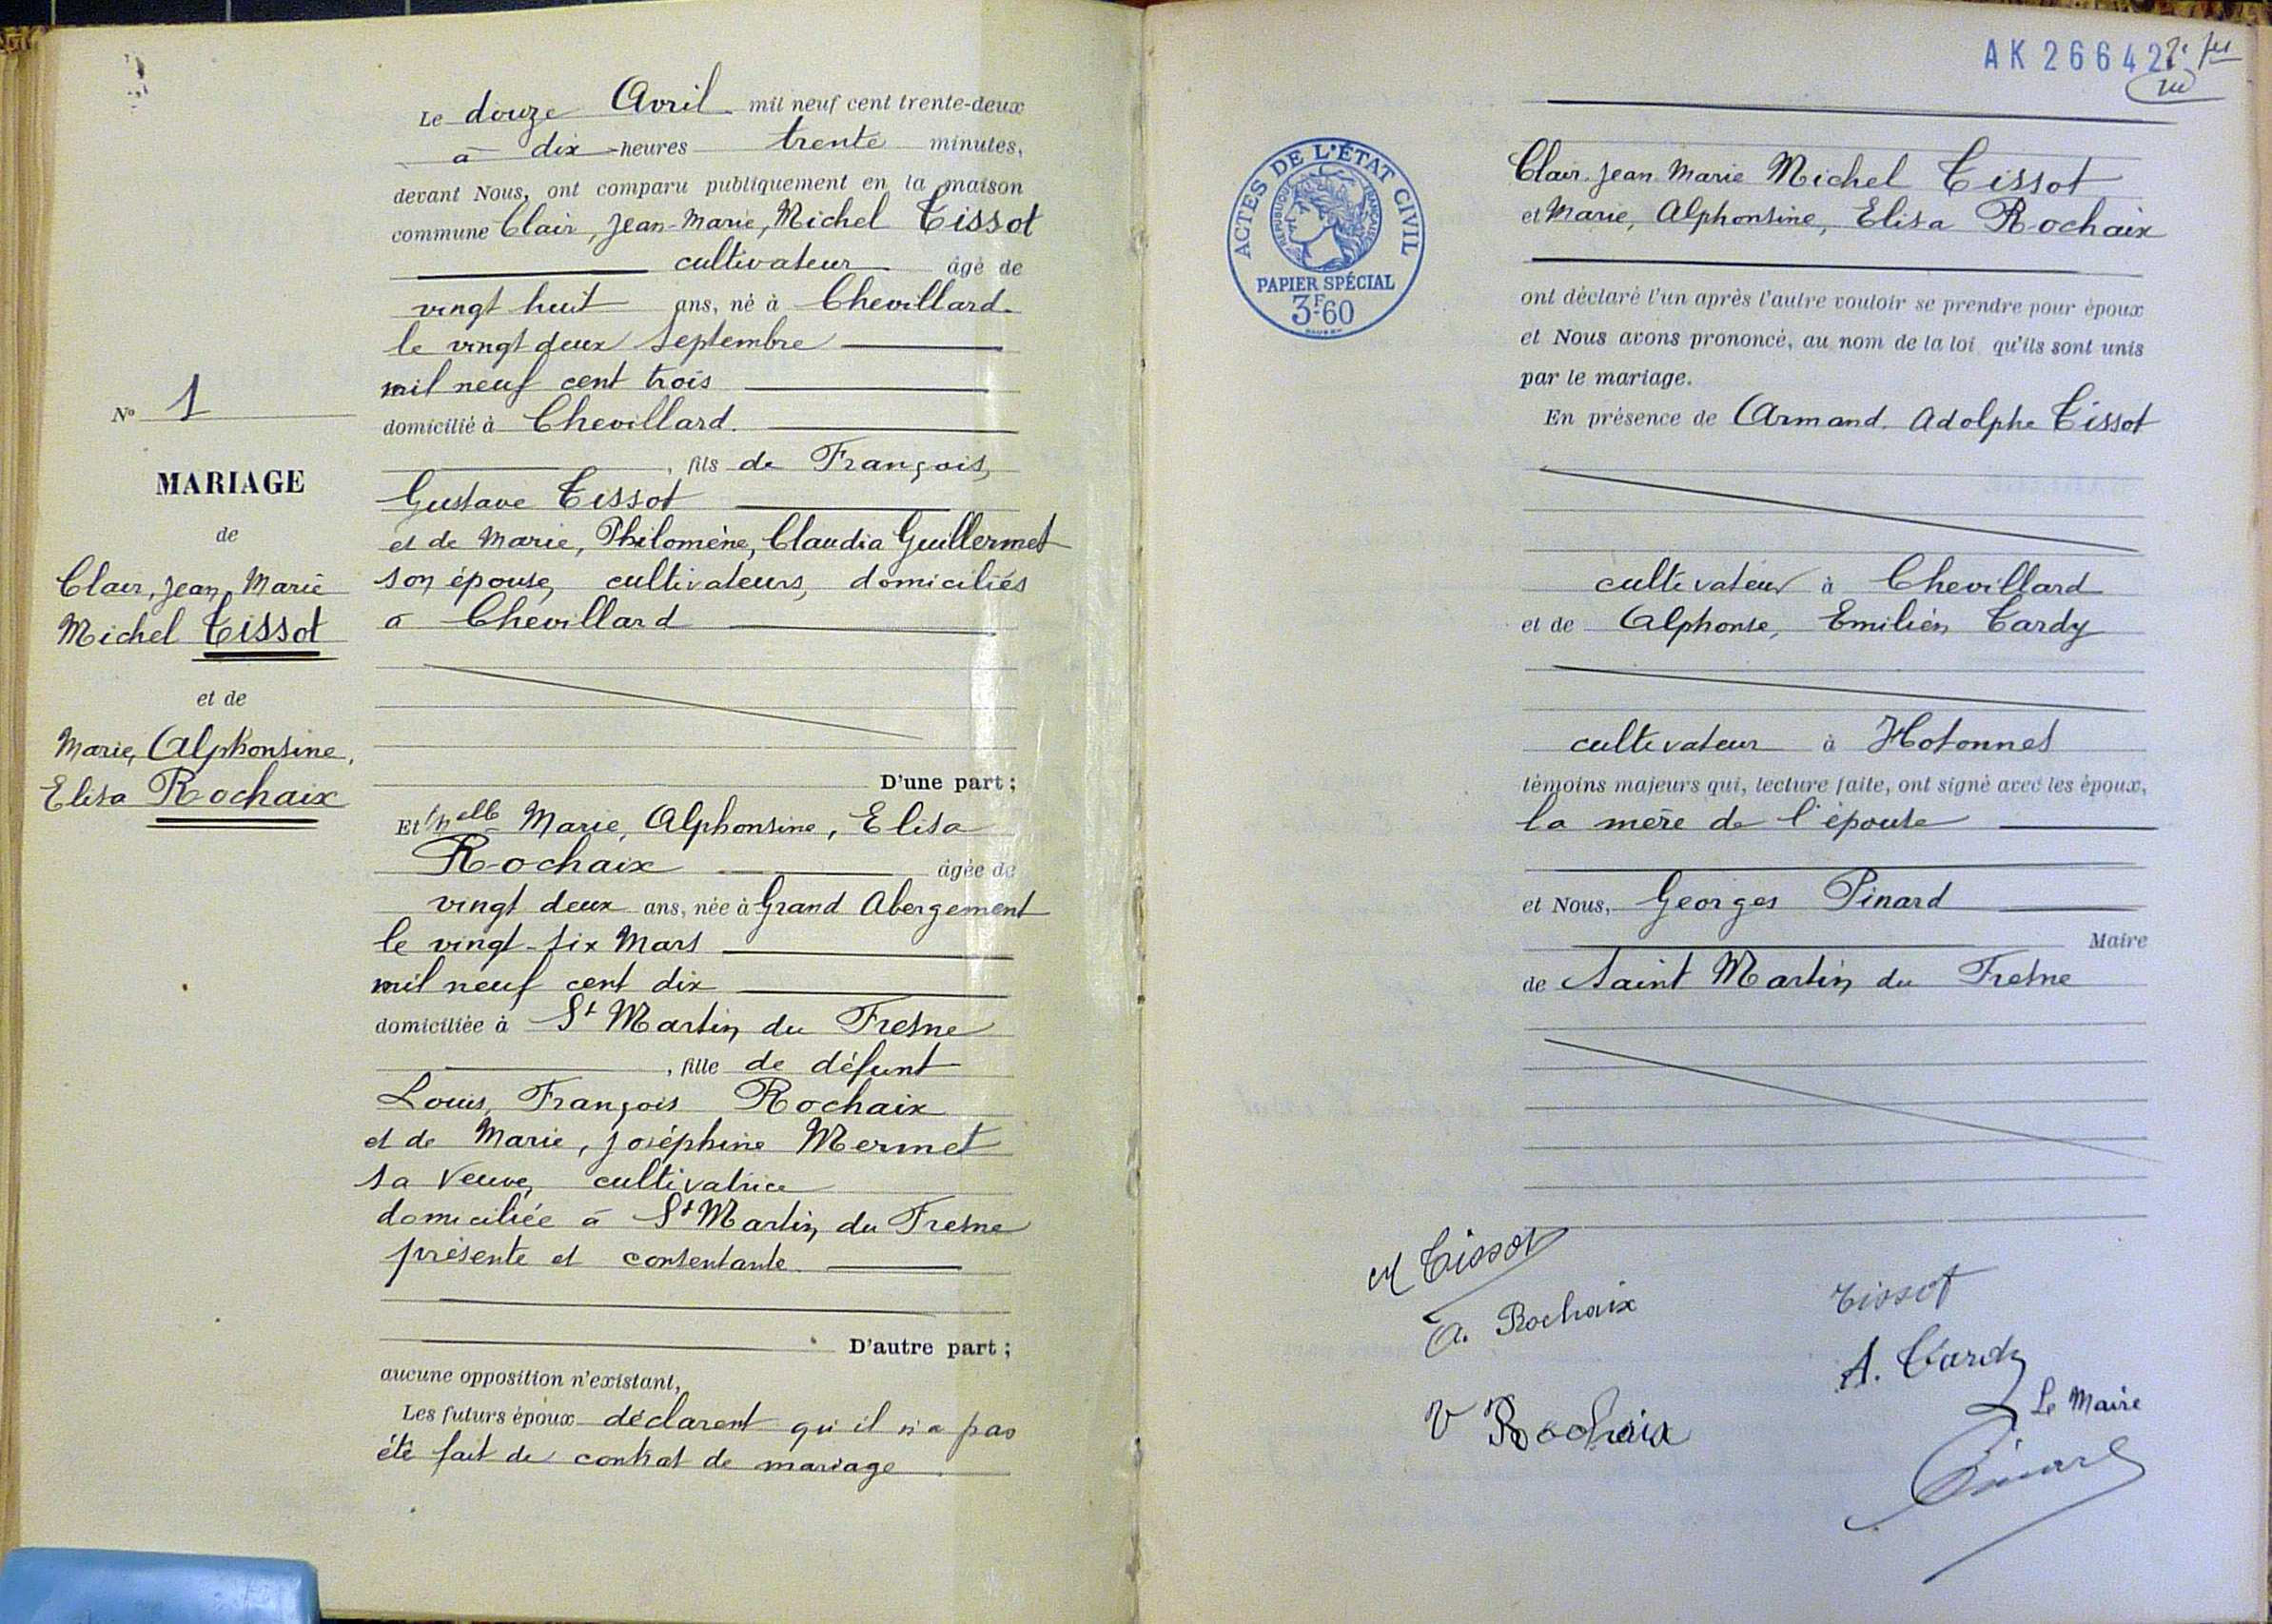 Le douze Avril mil neuf cent trente-deux
à dix heures trente minutes,
devant Nous, ont comparu publiquement en la maison
commune Clair, Jean-Marie, Michel Tissot
cultivateur âgé de
vingt huit ans, né à Chevillard
le vingt deux Septembre
mil neuf cent trois
domicilié à Chevillard.
, fils de François,
Gustave Tissot
et de Marie, Philomène, Claudia Guillermet
son épouse, cultivateurs, domiciliés
à Chevillard
D'une part ;
Et Melle Marie, Alphonsine, Elisa
Rochaix âgée de
vingt deux ans, née à Grand Abergement
le vingt-six Mars
mil neuf cent dix
domiciliée à St Martin du Fresne
, fille de défunt
Louis, François Rochaix
et de Marie, Joséphine Mermet
sa Veuve, cultivatrice
domiciliée à St Martin du Fresne
présente et consentante
D'autre part ;
aucune opposition n'existant,
Les futurs époux déclarent qu'il n'a pas
été fait de contrat de mariage
No 1
MARIAGE
de
Clair, Jean, Marie
Michel Tissot
et de
Marie, Alphonsine,
Elisa Rochaix
AK 26642
ACTES DE L'ÉTAT CIVIL
RÉPUBLIQUE FRANÇAISE
PAPIER SPÉCIAL
3F60
Clair Jean Marie Michel Tissot
et Marie, Alphonsine, Elisa Rochaix
ont déclaré l'un après l'autre vouloir se prendre pour époux
et Nous avons prononcé, au nom de la loi qu'ils sont unis
par le mariage.
En présence de Armand. Adolphe Tissot
cultivateur à Chevillard
et de Alphonse, Emilien Tardy
cultivateur à Hotonnes
témoins majeurs qui, lecture faite, ont signé avec les époux,
la mère de l'épouse
et Nous, Georges Pinard
Maire
de Saint Martin du Fresne
M Tissot
A. Rochaix
Tissot
A. Tardy
V Rochaix
Le Maire
Pinard